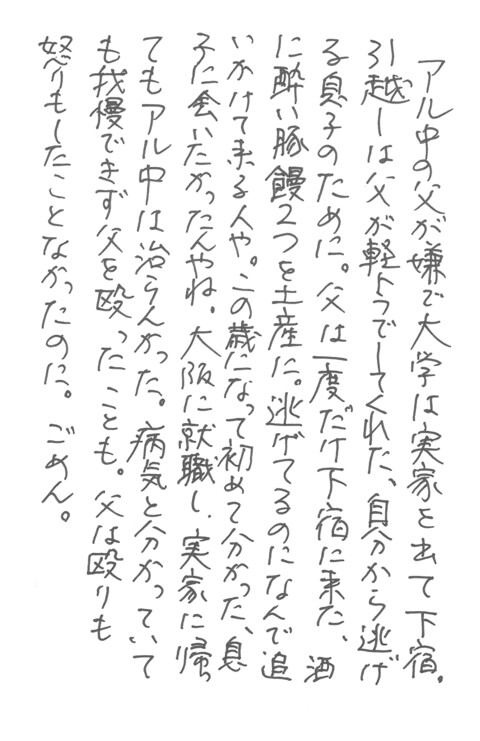 アル中の父が嫌で大学は実家を出て下宿。
引越しは父が軽トラでしてくれた、自分から逃げ
る息子のために。父は一度だけ下宿に来た、酒
に酔い豚饅2つを土産に。逃げてるのになんで追
いかけて来る人や。この歳になって初めて分かった、息
子に会いたかったんやね。大阪に就職し、実家に帰っ
てもアル中は治らんかった。病気と分かっていて
も我慢できず父を殴ったことも。父は殴りも
怒りもしたことなかったのに。ごめん。